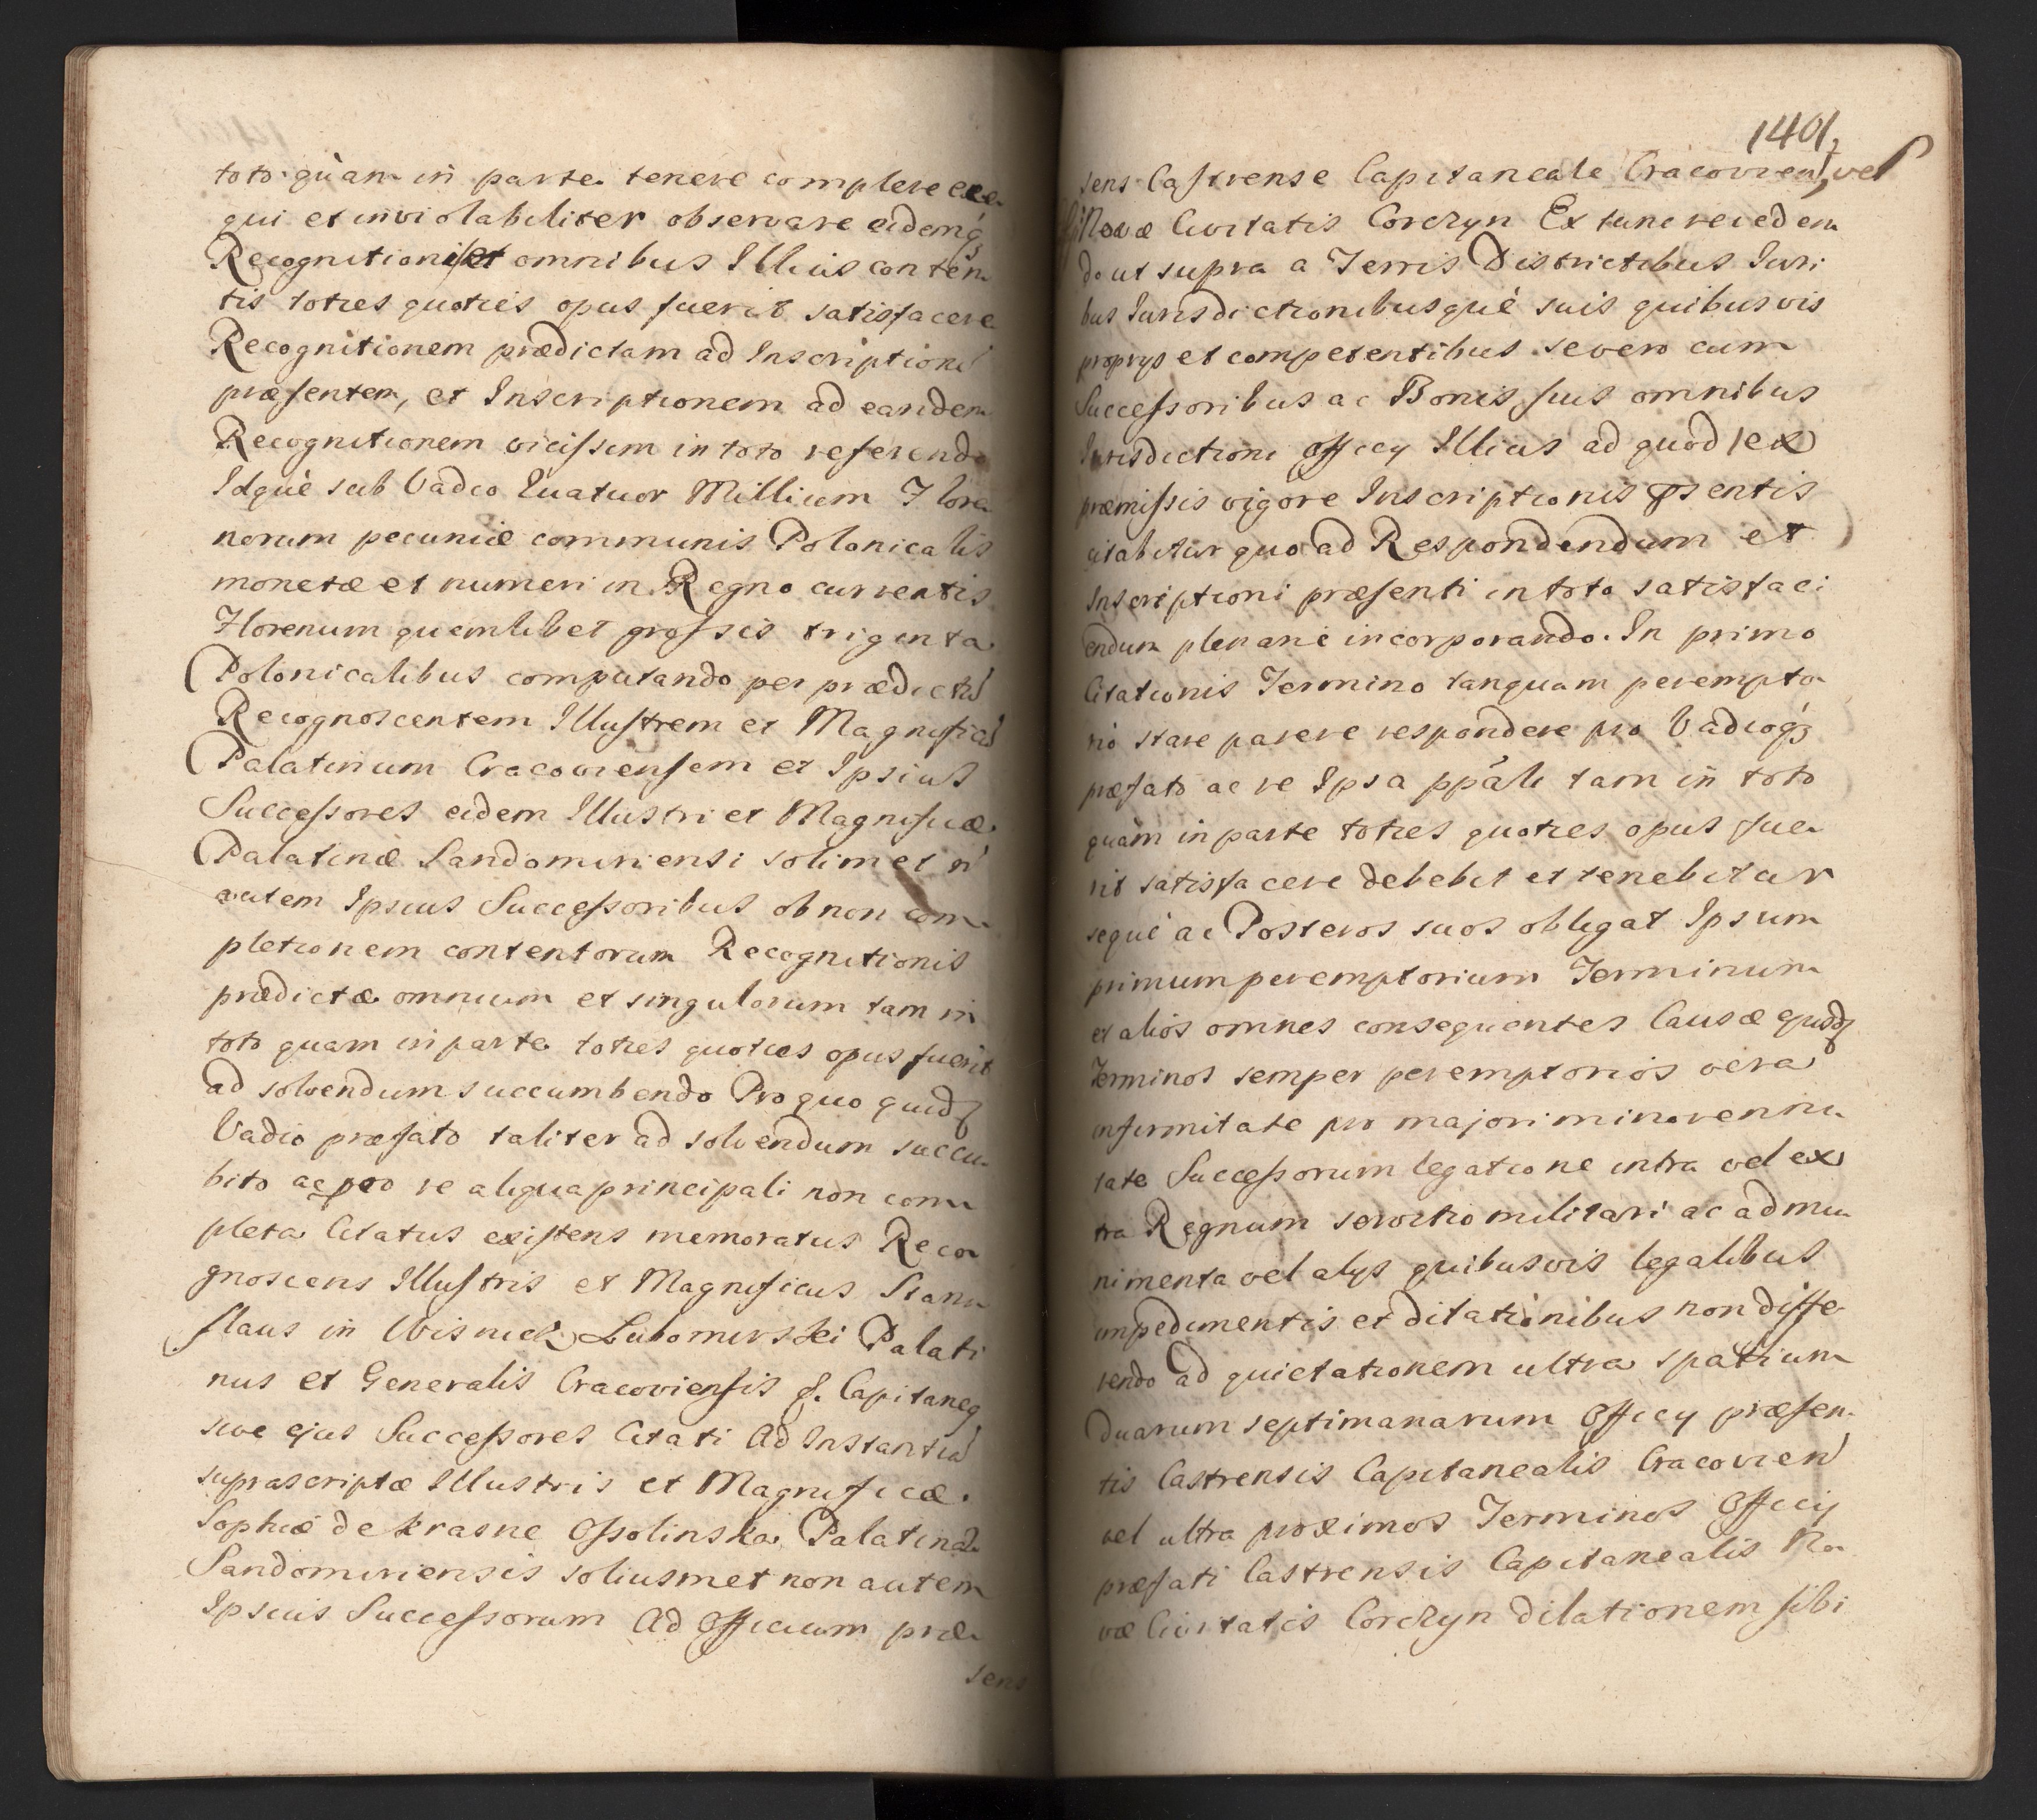 toto quàm in parte tenere complere exe
qui et inviolabiliter observare eidemq́
Recognitioni et omnibus Illius conten
tis toties quoties opus fuerit satisfacere
Recognitionem prædictam ad Inscriptioné
præsentem, et Inscriptionem ad eandem
Recognitionem vicissim in toto referendo
Idquè sub Vadio Quatuor Millium Flore
norum pecuniæ communis Polonicalis
monetæ et numeri in Regno currentis
Florenum quemlibet grossis triginta
Polonicalibus computando per prædictú
Recognoscentem Illustrem et Magnificú
Palatinum Cracoviensem et Ipsius
Successores eidem Illustri et Magnificæ
Palatinæ Sandomiriensi solimet ń
autem Ipsius Successoribus ob non com
pletionem contentorum Recognitionis
prædictæ omnium et singulorum tam in
toto quam in parte toties quoties opus fuerit
ad solvendum succumbendo Pro quo quidq
Vadio præfato taliter ad solvendum succu
bito ac pro re aliqua principali non com
pleta Citatus existens memoratus Reco
gnoscens Illustris et Magnificus Stani
slaus in Wisnicz Lubomirski Palati
nus et Generalis Cracoviensis &. Capitaneq
sive ejus Successores Citati Ad Instantiá
suprascriptæ Illustris et Magnificæ
Sophiæ de Krasne Ossolinska Palatinæ
Sandomiriensis soliusmet non autem
Ipsius Successorum Ad Officium præ
sens
1401
sens Castrense Capitaneale Cracovien, vel
Novæ Civitatis Corczyn Ex tunc recedem
do ut supra a Terris Districtibus Iuri
bus Iurisdictionibusquè suis quibusvis
proprys et competentibus se vero cum
Successoribus ac Bonis suis omnibus
Iurisdictioni Officy Illius ad quod ex
præmissis vigore Inscriptionis psentis
citabitur quo ad Respondendum et
Inscriptioni præsenti in toto satisfaci
endum plenariè incorporando. In primo
Citationis Termino tanquam perempto
rio stare parere respondere pro Vadioq́
præfato ac re Ipsa ppáli tam in toto
quàm in parte toties quoties opus fue
rit satisfacere debebit et tenebitur
sequè ac Posteros suos obligat Ipsum
primum peremptorium Terminum
et alios omnes consequentes Causæ ejusdq
Terminos semper peremptorios vera
infirmitate pro majori minorenni
tate Successorum legatione intra vel ex
tra Regnum servitio militari ac ad mu
nimenta vel alys quibusvis legalibus
impedimentis et dilationibus non diffe
rendo ad quietationem ultra spatium
duarum septimanarum Officy præsen
tis Castrensis Capitanealis Cracovien
vel ultra proximos Terminos Officij
præfati Castrensis Capitanealis No
væ Civitatis Corczyn dilationem sibi